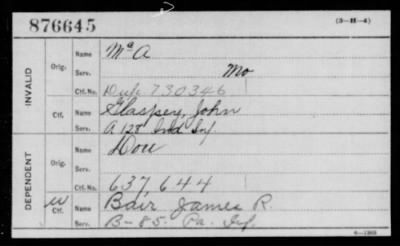 876645
(3-H-4)
INVALID
Orig.
Name McA
Serv. Mo
Ctf. No. Dup 730346
Ctf.
Name Glaspey, John
Serv. A 128 Ind Inf.
DEPENDENT
Orig.
Name Dou
Serv.
Ctf. No. 637,644
W Ctf.
Name Bair James R.
Serv. B-85 Pa. Inf.
6-1263